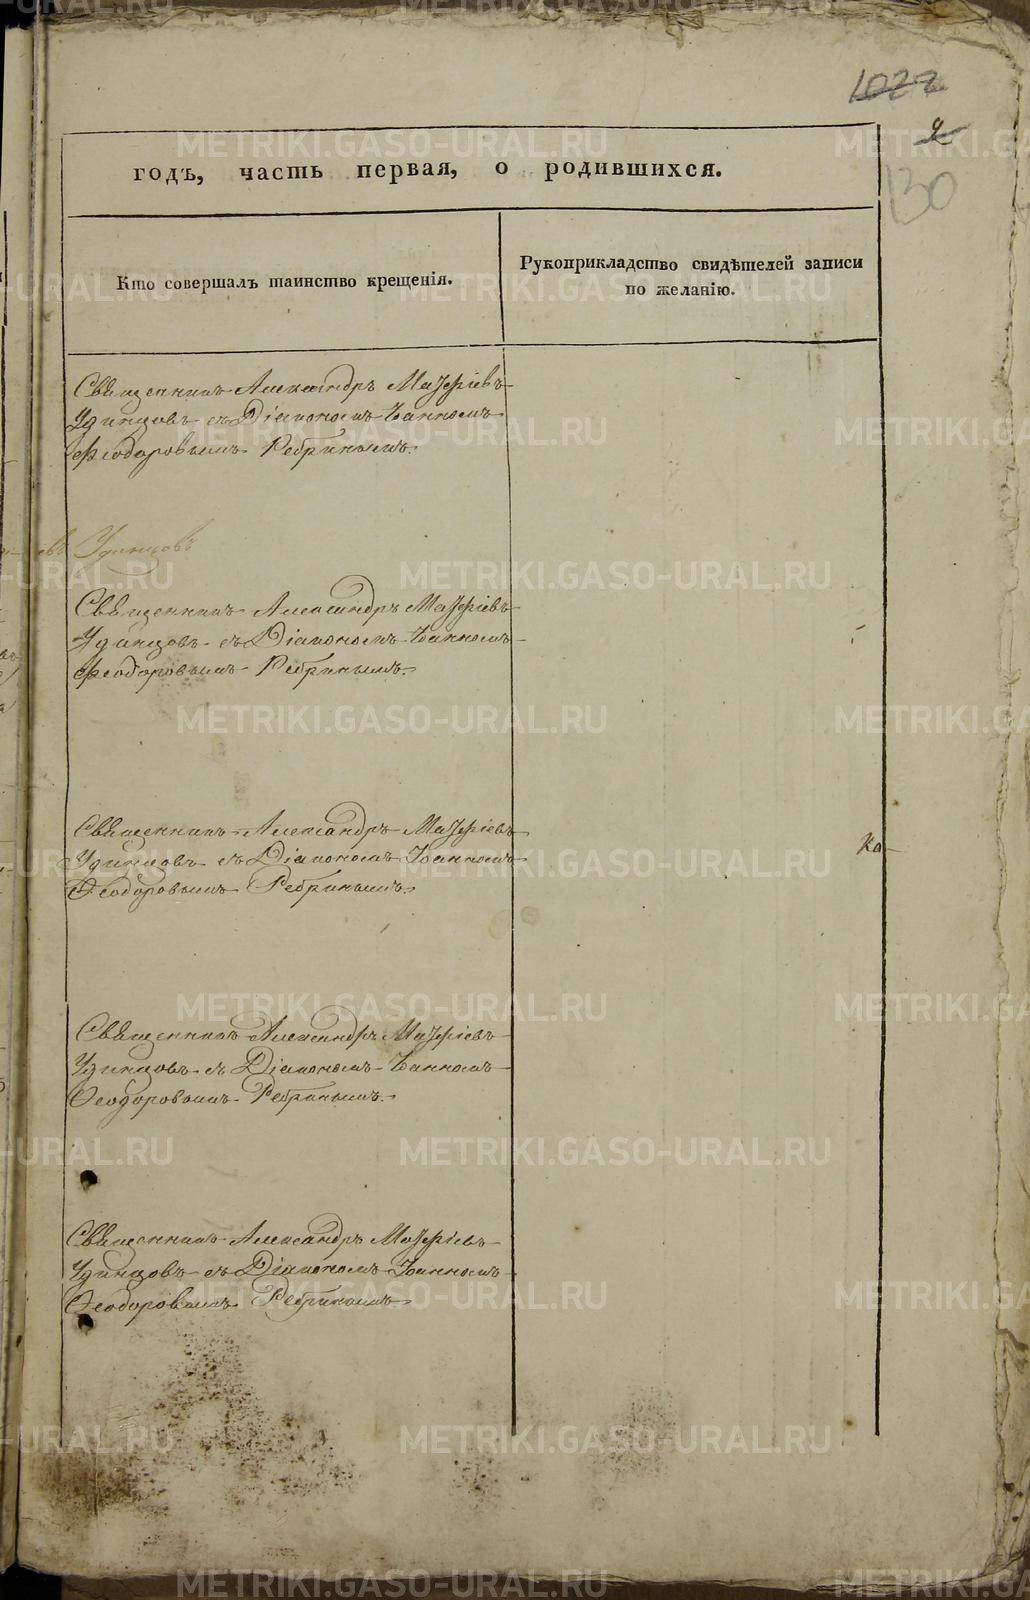 1022
2
130
годъ, часть первая, о родившихся.
Кто совершалъ таинство крещенія.
Рукоприкладство свидѣтелей записи
по желанію.
Священникъ Александръ Матфіевъ
Удинцовъ съ Діакономъ Іоанномъ
Феодоровымъ Ребринымъ.
Удинцовъ
Священникъ Александръ Матфіевъ
Удинцовъ съ Діакономъ Іоанномъ
Феодоровымъ Ребринымъ.
Священникъ Александръ Матфіевъ
Удинцовъ съ Діакономъ Іоанномъ
Ѳеодоровымъ Ребринымъ.
Ка
Священникъ Александръ Матфіевъ
Удинцовъ съ Діакономъ Іоанномъ
Ѳеодоровымъ Ребринымъ.
Священникъ Александръ Матфіевъ
Удинцовъ съ Діакономъ Іоанномъ
Ѳеодоровымъ Ребринымъ
METRIKI.GASO-URAL.RU